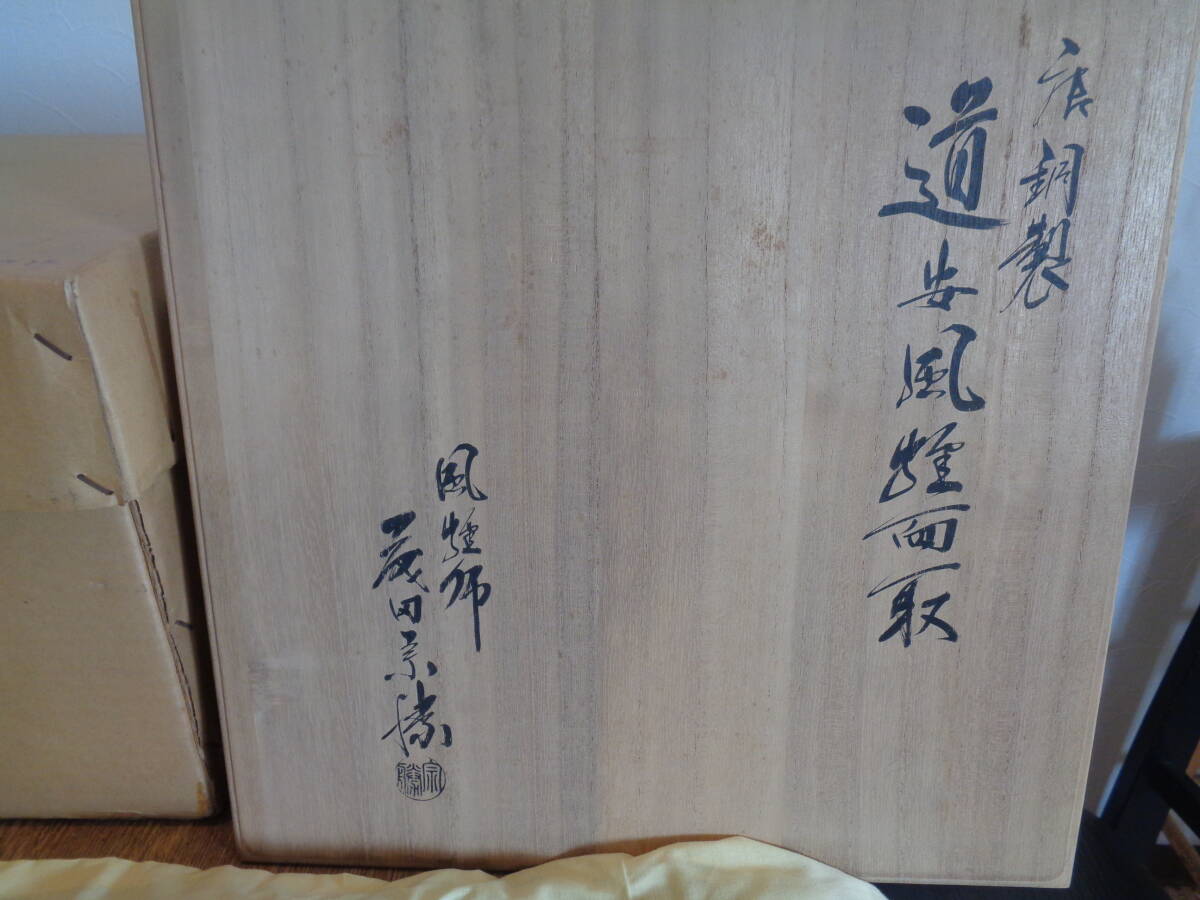 唐銅製
道安風炉面取
風炉師
歳田宗勝
宗勝